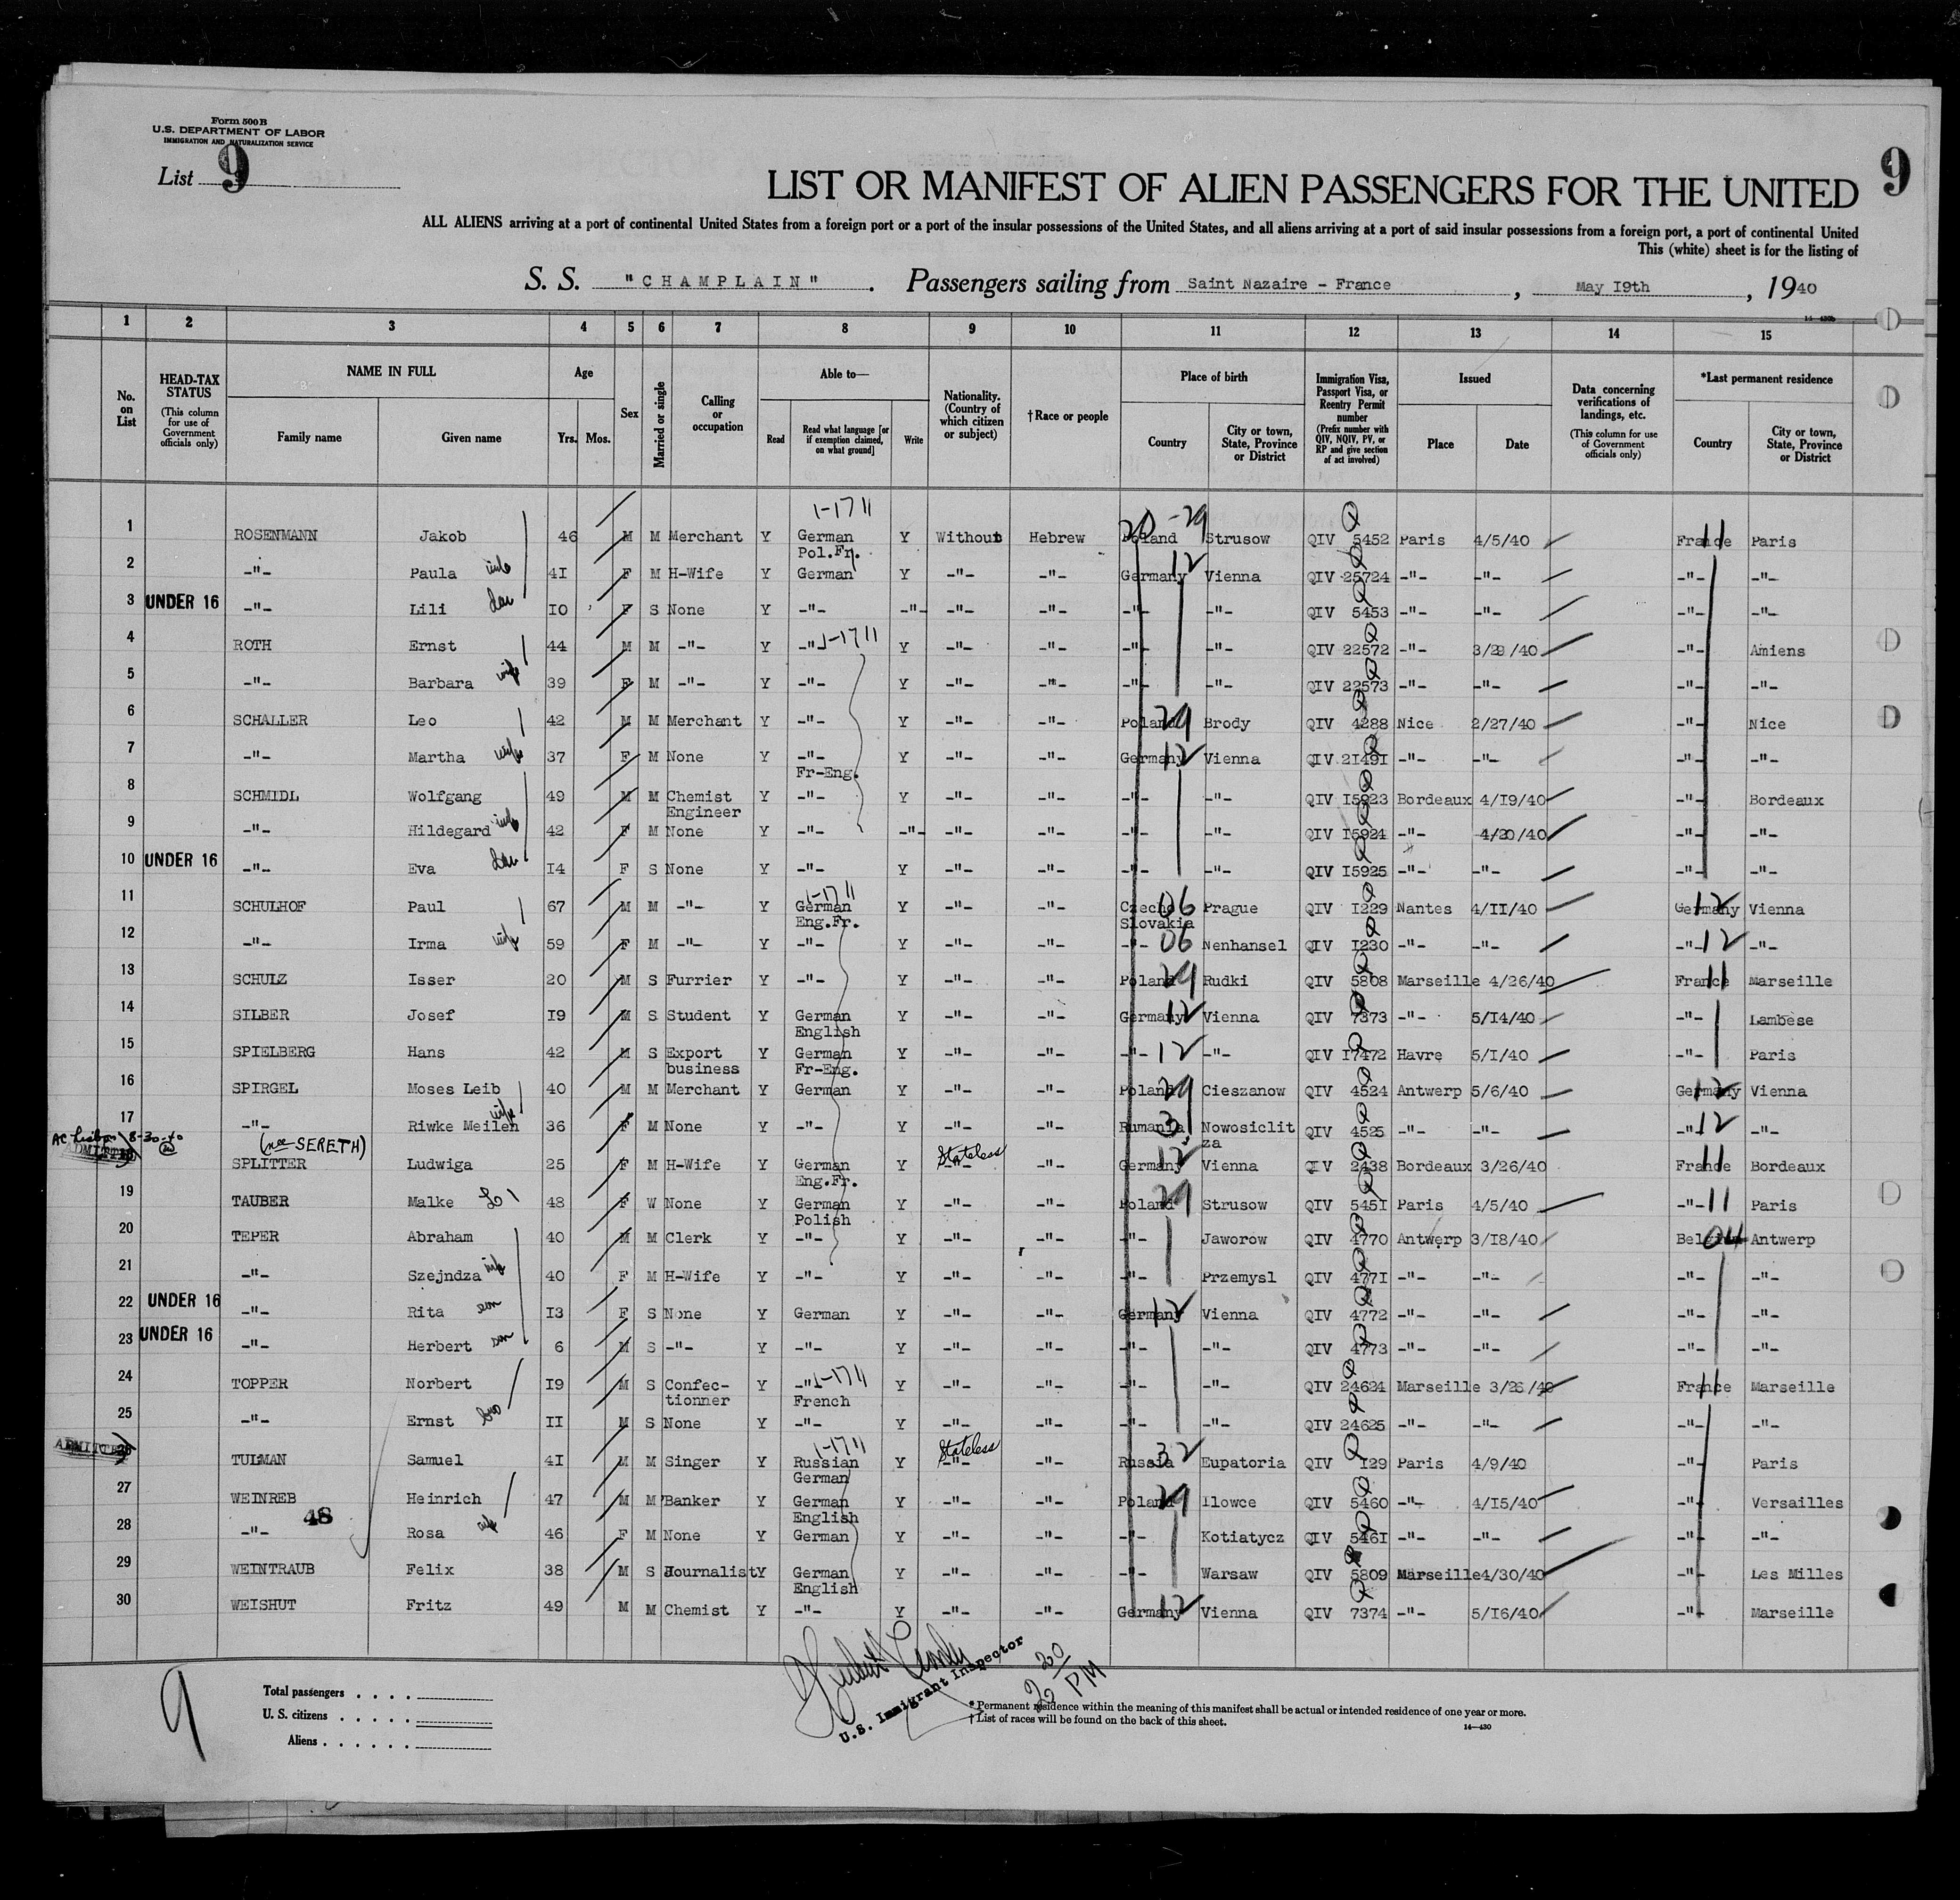 Form 500B
U.S. DEPARTMENT OF LABOR
IMMIGRATION AND NATURALIZATION SERVICE
List 9
9
LIST OR MANIFEST OF ALIEN PASSENGERS FOR THE UNITED
ALL ALIENS arriving at a port of continental United States from a foreign port or a port of the insular possessions of the United States, and all aliens arriving at a port of said insular possessions from a foreign port, a port of continental United
This (white) sheet is for the listing of
S. S. "CHAMPLAIN". Passengers sailing from Saint Nazaire - France, May I9th, 1940
1 2 3 4 5 6 7 8 9 10 11 12 13 14 15
No. on List
HEAD-TAX STATUS (This column for use of Government officials only)
NAME IN FULL Family name Given name
Age Yrs. Mos.
Sex
Married or single
Calling or occupation
Able to— Read Read what language [or if exemption claimed, on what ground] Write
Nationality. (Country of which citizen or subject)
†Race or people
Place of birth Country City or town, State, Province or District
Immigration Visa, Passport Visa, or Reentry Permit number (Prefix number with QIV, NQIV, PV, or RP and give section of act involved)
Issued Place Date
Data concerning verifications of landings, etc. (This column for use of Government officials only)
*Last permanent residence Country City or town, State, Province or District
1 ROSENMANN Jakob 46 M M Merchant Y German Pol.Fr. Y Without Hebrew Poland Strusow QIV 5452 Paris 4/5/40 France 11 Paris
2 -"- Paula wife 4I F M H-Wife Y German Y -"- -"- Germany 12 Vienna QIV 25724 -"- -"- -"- -"-
3 UNDER 16 -"- Lili dau I0 F S None Y -"- -"- -"- -"- -"- -"- QIV 5453 -"- -"- -"- -"-
4 ROTH Ernst 44 M M -"- Y -"- 1-1711 Y -"- -"- -"- -"- QIV 22572 -"- 3/29/40 -"- Amiens
5 -"- Barbara wife 39 F M -"- Y -"- Y -"- -"- -"- -"- QIV 22573 -"- -"- -"- -"-
6 SCHALLER Leo 42 M M Merchant Y -"- Y -"- -"- Poland 29 Brody QIV 4288 Nice 2/27/40 -"- Nice
7 -"- Martha wife 37 F M None Y -"- Fr-Eng. Y -"- -"- Germany 12 Vienna QIV 2I49I -"- -"- -"- -"-
8 SCHMIDL Wolfgang 49 M M Chemist Engineer Y -"- Y -"- -"- -"- -"- QIV I5923 Bordeaux 4/I9/40 -"- Bordeaux
9 -"- Hildegard wife 42 F M None Y -"- -"- -"- -"- -"- -"- QIV I5924 -"- 4/20/40 -"- -"-
10 UNDER 16 -"- Eva dau I4 F S None Y -"- Y -"- -"- -"- -"- QIV I5925 -"- -"- -"- -"-
11 SCHULHOF Paul 67 M M -"- Y German Eng.Fr. Y -"- -"- Czecho Slovakia 06 Prague QIV I229 Nantes 4/II/40 Germany 12 Vienna
12 -"- Irma wife 59 F M -"- Y -"- Y -"- -"- -"- 06 Nenhansel QIV I230 -"- -"- -"- 12 -"-
13 SCHULZ Isser 20 M S Furrier Y -"- Y -"- -"- Poland 29 Rudki QIV 5808 Marseille 4/26/40 France 11 Marseille
14 SILBER Josef I9 M S Student Y German English Y -"- -"- Germany 12 Vienna QIV 7373 -"- 5/I4/40 -"- Lambese
15 SPIELBERG Hans 42 M S Export business Y German Fr-Eng. Y -"- -"- -"- 12 -"- QIV I7472 Havre 5/I/40 -"- Paris
16 SPIRGEL Moses Leib 40 M M Merchant Y German Y -"- -"- Poland 29 Cieszanow QIV 4524 Antwerp 5/6/40 Germany 12 Vienna
17 -"- Riwke Meilen wife 36 F M None Y -"- Y -"- -"- Rumania 31 Nowosiclit za QIV 4525 -"- -"- -"- 12 -"-
8-30-40 ADMITTED (nee SERETH)
SPLITTER Ludwiga 25 F M H-Wife Y German Eng.Fr. Y Stateless -"- -"- Germany 12 Vienna QIV 2438 Bordeaux 3/26/40 France 11 Bordeaux
19 TAUBER Malke 48 F W None Y German Polish Y -"- -"- Poland 29 Strusow QIV 545I Paris 4/5/40 -"- 11 Paris
20 TEPER Abraham 40 M M Clerk Y -"- Y -"- -"- -"- Jaworow QIV 4770 Antwerp 3/I8/40 Belgium 04 Antwerp
21 -"- Szejndza wife 40 F M H-Wife Y -"- Y -"- -"- -"- Przemysl QIV 477I -"- -"- -"- -"-
22 UNDER 16 -"- Rita son I3 F S None Y German Y -"- -"- Germany 12 Vienna QIV 4772 -"- -"- -"- -"-
23 UNDER 16 -"- Herbert son 6 M S -"- Y -"- Y -"- -"- -"- -"- QIV 4773 -"- -"- -"- -"-
24 TOPPER Norbert I9 M S Confec- tionner Y -"- 1-1711 French Y -"- -"- -"- -"- QIV 24624 Marseille 3/28/40 France 11 Marseille
25 -"- Ernst bro II M S None Y -"- Y -"- -"- -"- -"- QIV 24625 -"- -"- -"- -"-
ADMITTED 26 TULMAN Samuel 4I M M Singer Y 1-1711 Russian German Y Stateless -"- -"- Russia 32 Eupatoria QIV I29 Paris 4/9/40 -"- Paris
27 WEINREB Heinrich 47 M M Banker Y German English Y -"- -"- Poland 29 Ilowce QIV 5460 -"- 4/I5/40 -"- Versailles
48
28 -"- Rosa wife 46 F M None Y German Y -"- -"- -"- Kotiatycz QIV 546I -"- -"- -"- -"-
29 WEINTRAUB Felix 38 M S Journalist Y German English Y -"- -"- -"- Warsaw QIV 5809 Marseille 4/30/40 -"- Les Milles
30 WEISHUT Fritz 49 M M Chemist Y -"- Y -"- -"- Germany 12 Vienna QIV 7374 -"- 5/I6/40 -"- Marseille
9
Total passengers . . . .
U. S. citizens . . . . .
Aliens . . . . . .
U.S. Immigrant Inspector
2 20 PM
* Permanent residence within the meaning of this manifest shall be actual or intended residence of one year or more.
† List of races will be found on the back of this sheet.
14—430